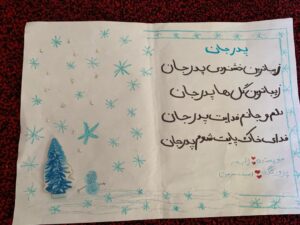 پدر جان
زیباترین خشنودی پدر جان
زیباترین گل ها پدر جان
دلم و جانم فدایت پدر جان
فدای خاک پایت شوم پدر جان